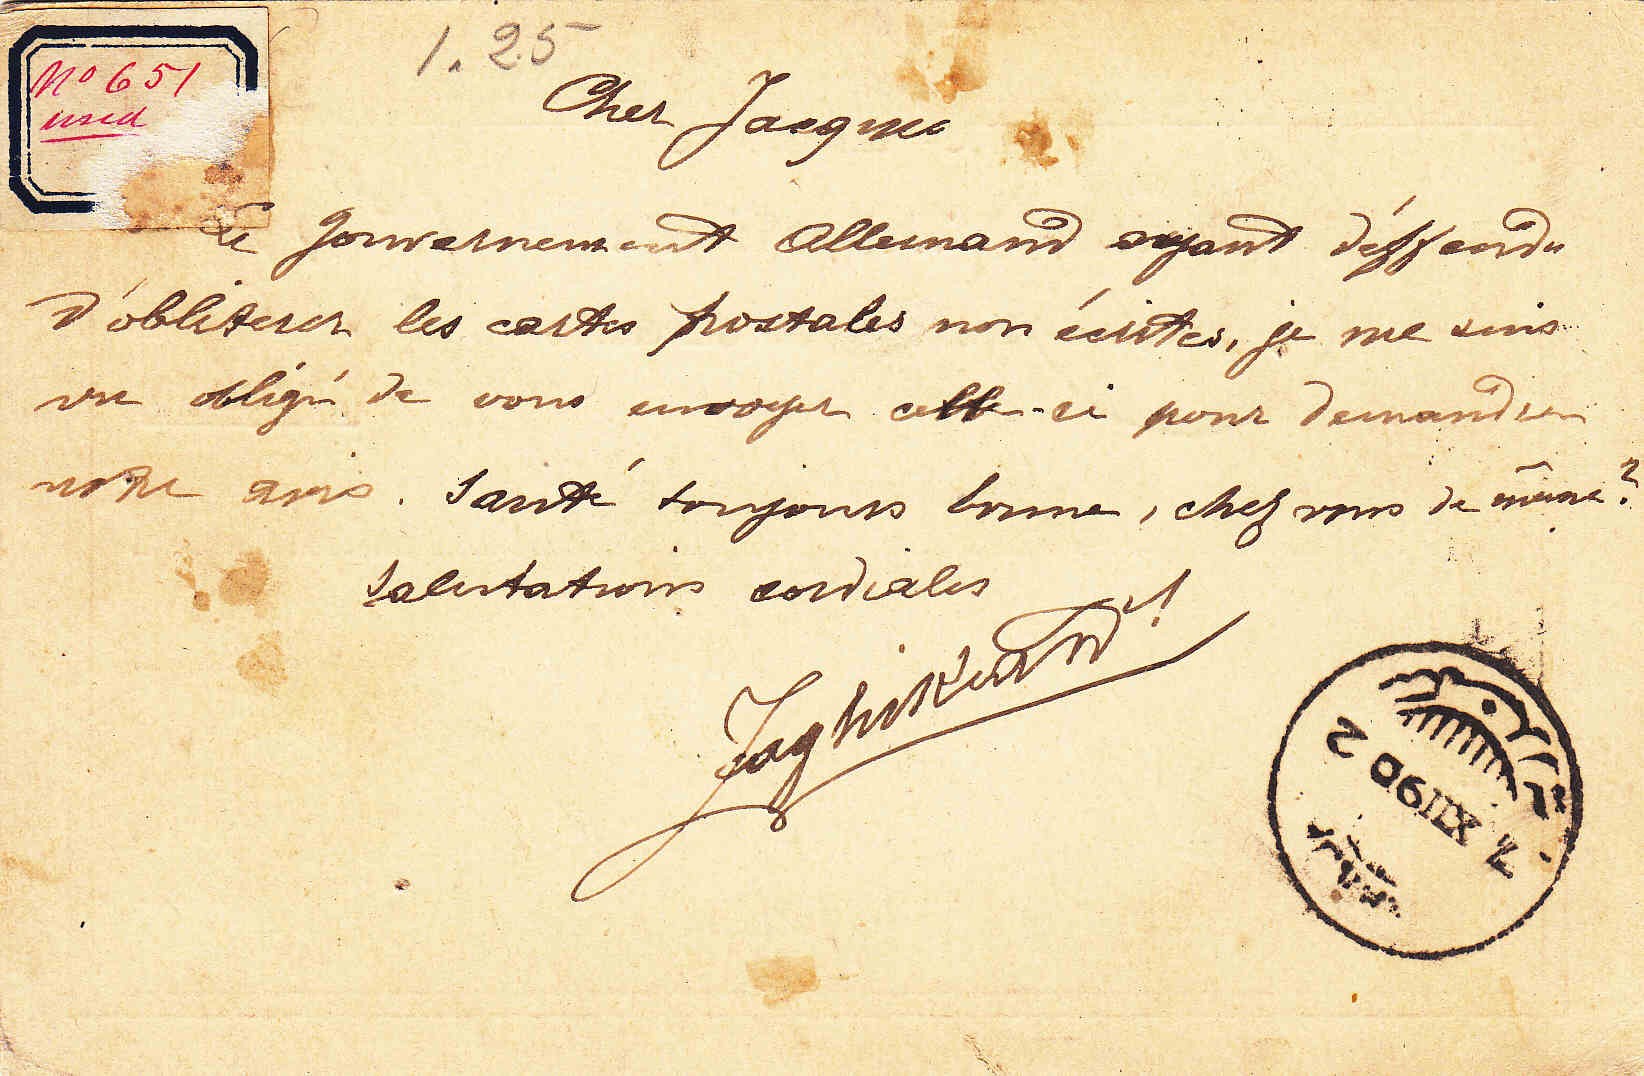 No 651
used
1.25
Cher Jacques
Le gouvernement allemand ayant déffendu
d'obliterer les cartes postales non écrites, je me suis
vu obligé de vous envoyer celle-ci pour demander
votre avis. Santé toujours bonne, chez vous de même?
Salutations cordiales
2 XII 90 2